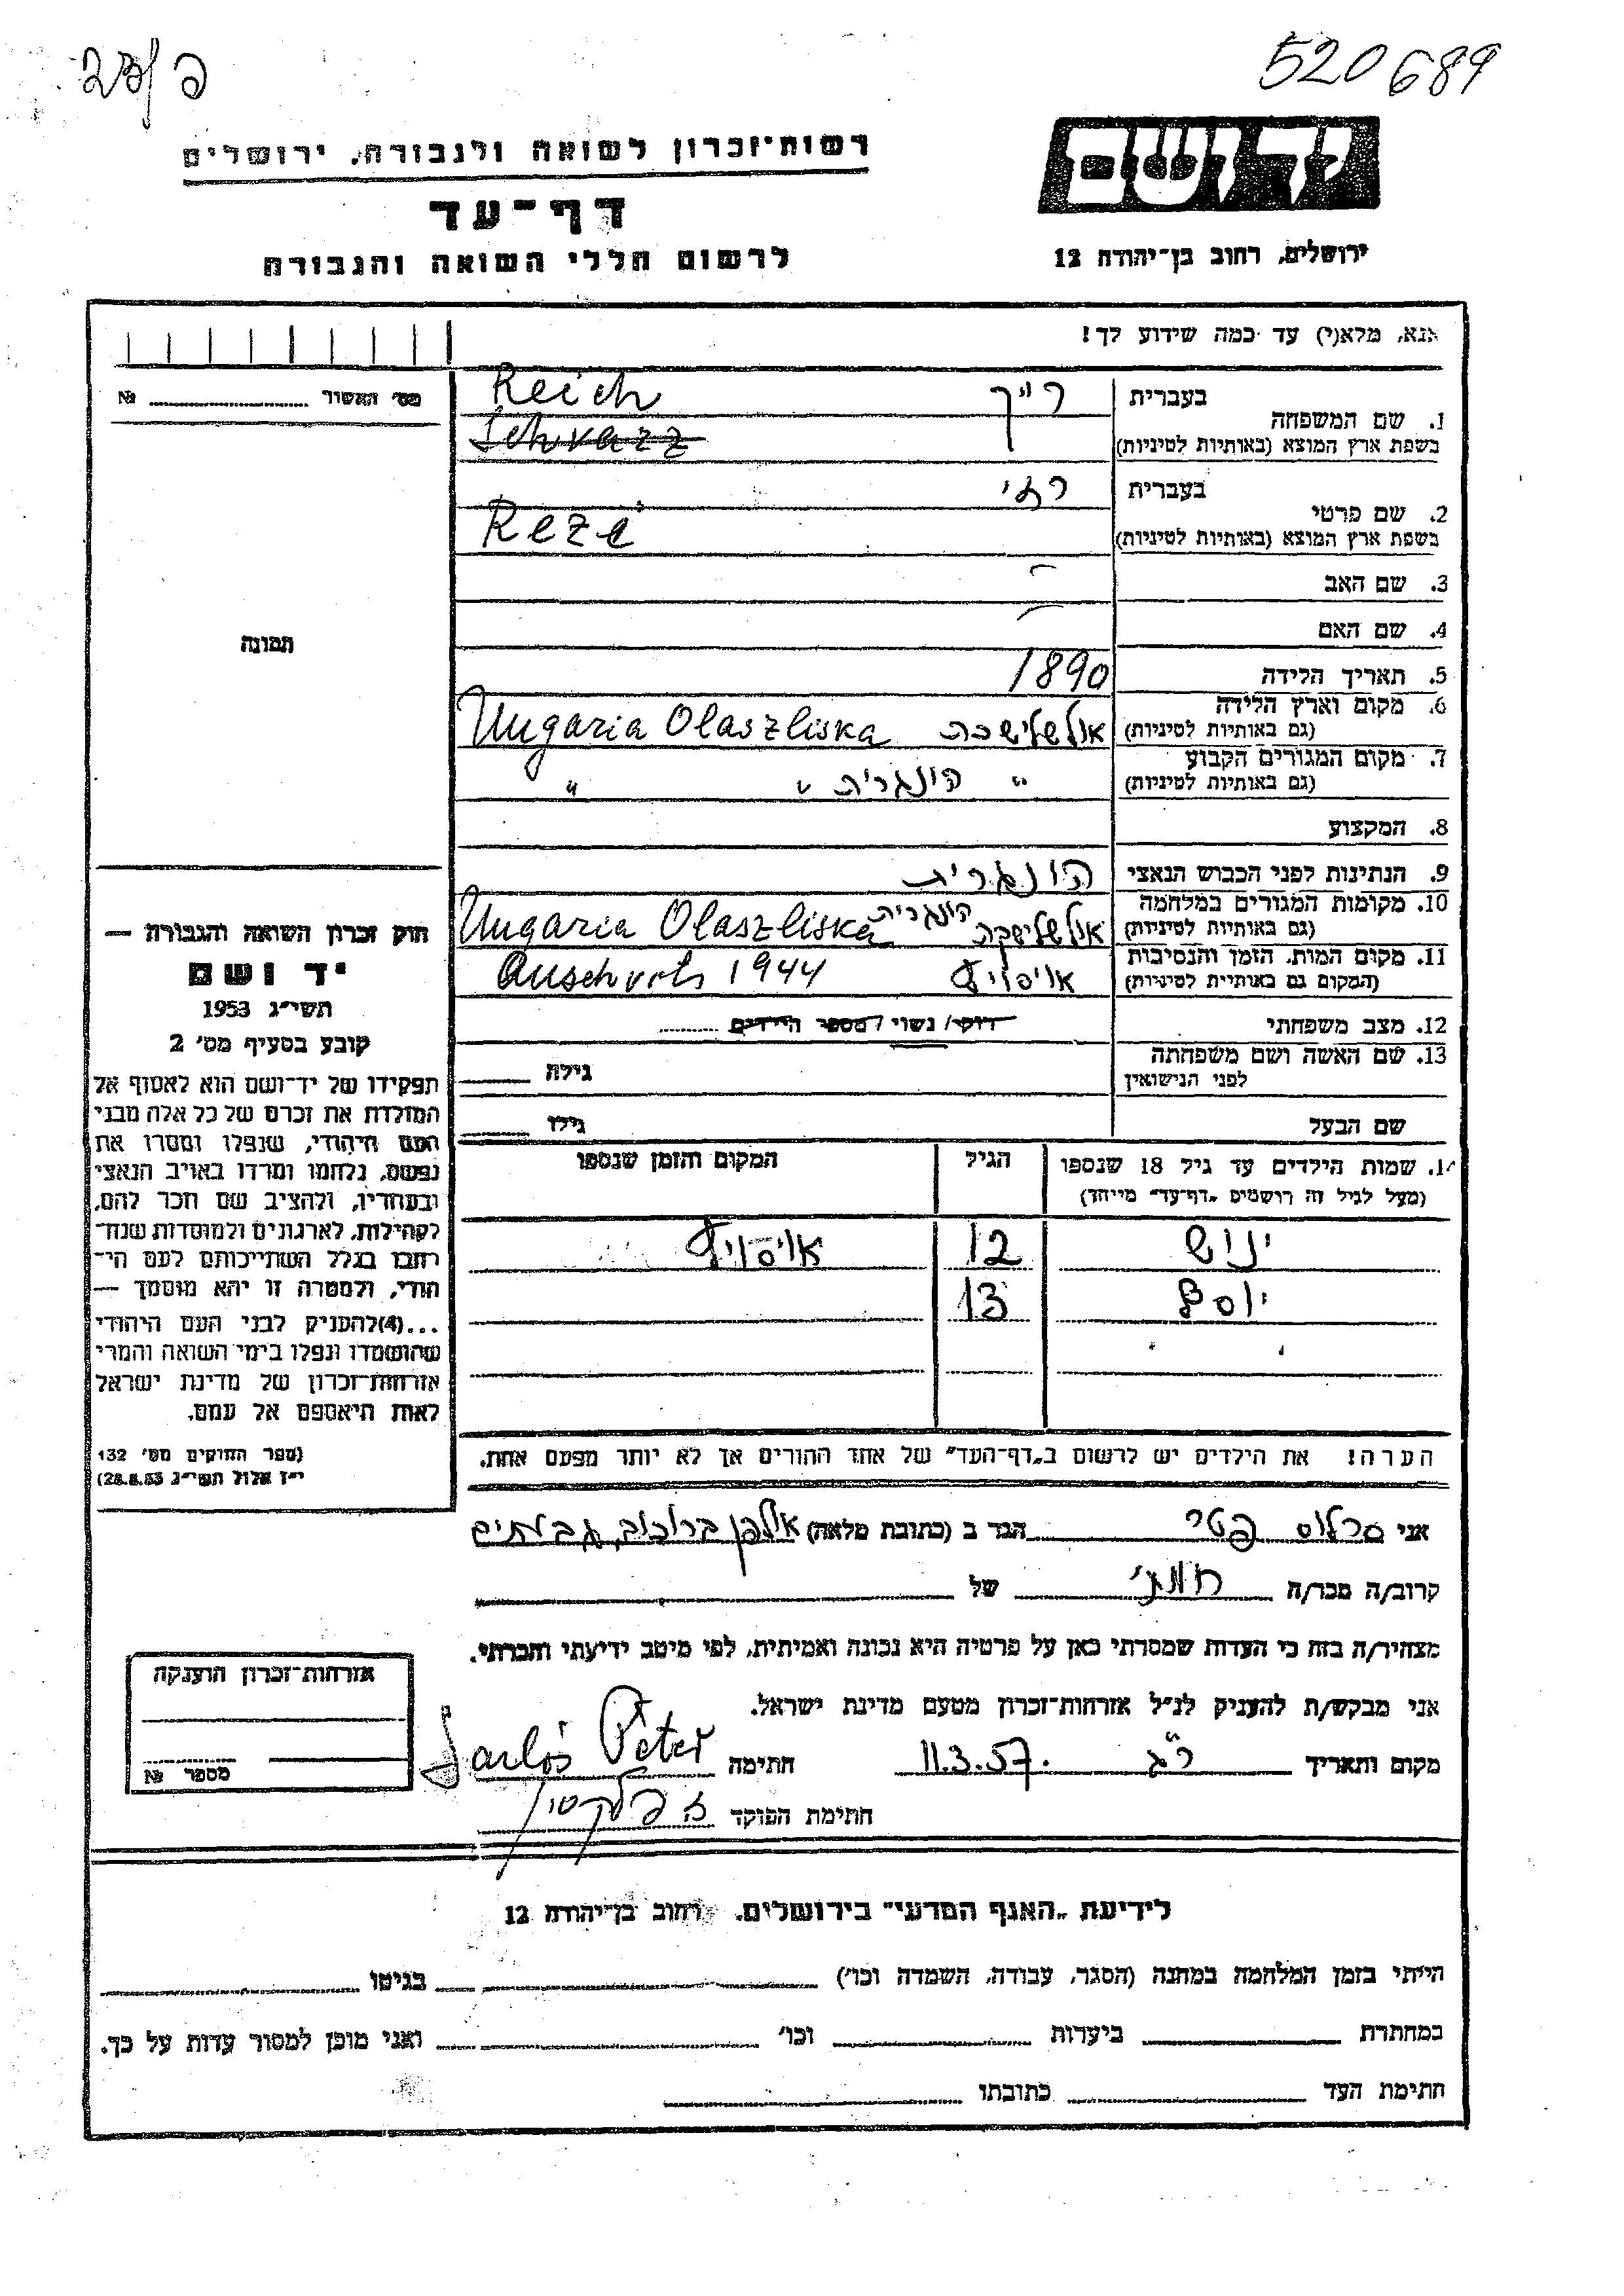 520689
רשות־זכרון לשואה ולגבורה, ירושלים
דף־עד
לרשום חללי השואה והגבורה
יד ושם
ירושלים, רחוב בן־יהודה 12
אנא, מלא(י) עד כמה שידוע לך!
מס׳ האשור № 
1. שם המשפחה
בעברית רייך
בשפת ארץ המוצא (באותיות לטיניות) Reich
Schvarz
2. שם פרטי
בעברית רזי
בשפת ארץ המוצא (באותיות לטיניות) Rezé
3. שם האב
4. שם האם
5. תאריך הלידה 1890
6. מקום וארץ הלידה
(גם באותיות לטיניות) Ungaria Olaszliska
7. מקום המגורים הקבוע
(גם באותיות לטיניות) " הונגרית " "
8. המקצוע
9. הנתינות לפני הכבוש הנאצי הונגרית
10. מקומות המגורים במלחמה
(גם באותיות לטיניות) הונגרית Ungaria Olaszliska
11. מקום המות, הזמן והנסיבות
(המקום גם באותיות לטיניות) Auschvits 1944
12. מצב משפחתי רוק/ נשוי / מספר הילדים
13. שם האשה ושם משפחתה
לפני הנישואין גילה
שם הבעל גילו
14. שמות הילדים עד גיל 18 שנספו
(מעל לגיל זה רושמים „דף־עד" מיוחד)
הגיל
המקום והזמן שנספו
ינוש 12
יוסף 13
הערה! את הילדים יש לרשום ב„דף־העד" של אחד ההורים אך לא יותר מפעם אחת.
תמונה
חוק זכרון השואה והגבורה —
יד ושם
תשי״ג 1953
קובע בסעיף מס׳ 2
תפקידו של יד־ושם הוא לאסוף אל
המולדת את זכרם של כל אלה מבני
העם היהודי, שנפלו ומסרו את
נפשם, נלחמו ומרדו באויב הנאצי
ובעוזריו, ולהציב שם וזכר להם,
לקהילות, לארגונים ולמוסדות שנח־
רבו בגלל השתייכותם לעם הי־
הודי, ולמטרה זו יהא מוסמך —
...(4)להעניק לבני העם היהודי
שהושמדו ונפלו בימי השואה והמרי
אזרחות־זכרון של מדינת ישראל
לאות היאספם אל עמם.
(ספר החוקים מס׳ 132
י״ז אלול תשי״ג 28.8.53)
אני פטר הגר ב (כתובת מלאה)
קרוב/ה מכר/ה של
מצהיר/ה בזה כי העדות שמסרתי כאן על פרטיה היא נכונה ואמיתית, לפי מיטב ידיעתי והכרתי.
אני מבקש/ת להעניק לנ״ל אזרחות־זכרון מטעם מדינת ישראל.
מקום ותאריך ר״ג 11.3.57. חתימה Sarlós Péter
חתימת הפוקד
אזרחות־זכרון הוענקה
מספר №
לידיעת „האגף המדעי" בירושלים, רחוב בן־יהודה 12
הייתי בזמן המלחמה במחנה (הסגר, עבודה, השמדה וכו׳) בגיטו
במחתרת ביערות וכו׳ ואני מוכן למסור עדות על כך.
חתימת העד כתובתו